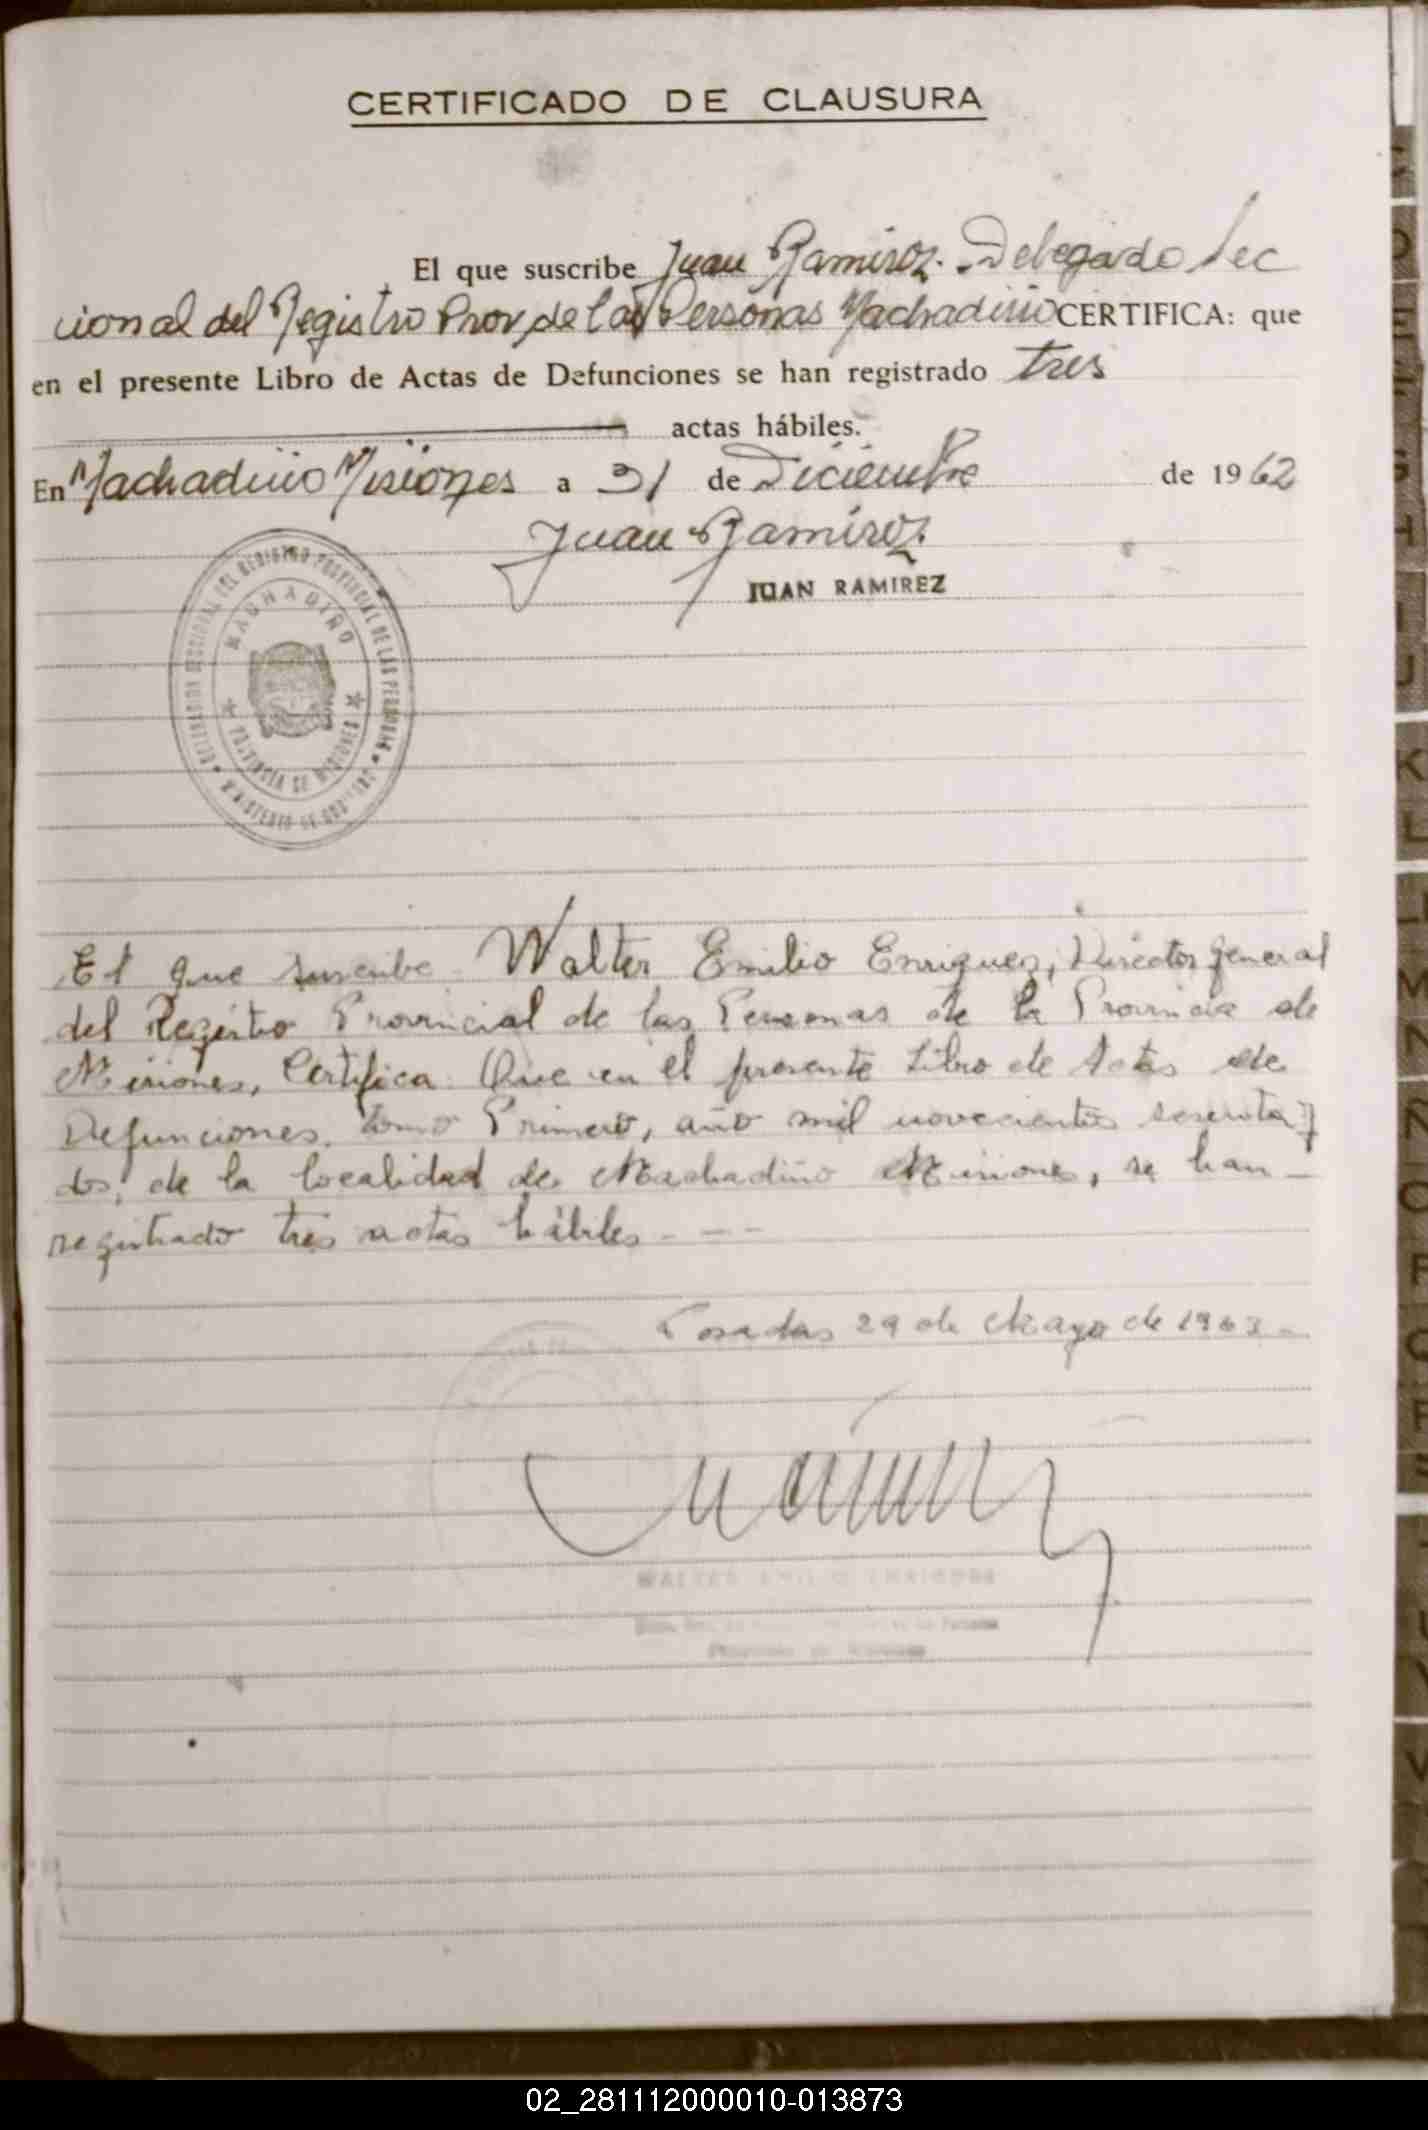 CERTIFICADO DE CLAUSURA
El que suscribe Juan Ramirez. Delegado Sec
cional del Registro Prov de las Personas Machadiño CERTIFICA: que
en el presente Libro de Actas de Defunciones se han registrado tres
actas hábiles.
En Machadiño Misiones a 31 de Diciembre de 1962
Juan Ramirez.
JUAN RAMIREZ
DELEGACION SECCIONAL DEL REGISTRO PROVINCIAL DE LAS PERSONAS
MACHADIÑO
PROVINCIA DE MISIONES
MINISTERIO DE GOBIERNO
El que suscribe Walter Emilio Enriquez, Director General
del Registro Provincial de las Personas de la Provincia de
Misiones, Certifica: Que en el presente Libro de Actas de
Defunciones, tomo Primero, año mil novecientos sesenta y
dos, de la localidad de Machadiño Misiones, se han
registrado tres actas hábiles - - -
Posadas 29 de Mayo de 1963 -
WALTER EMILIO ENRIQUEZ
02_281112000010-013873
A
K
L
M
N
Ñ
O
P